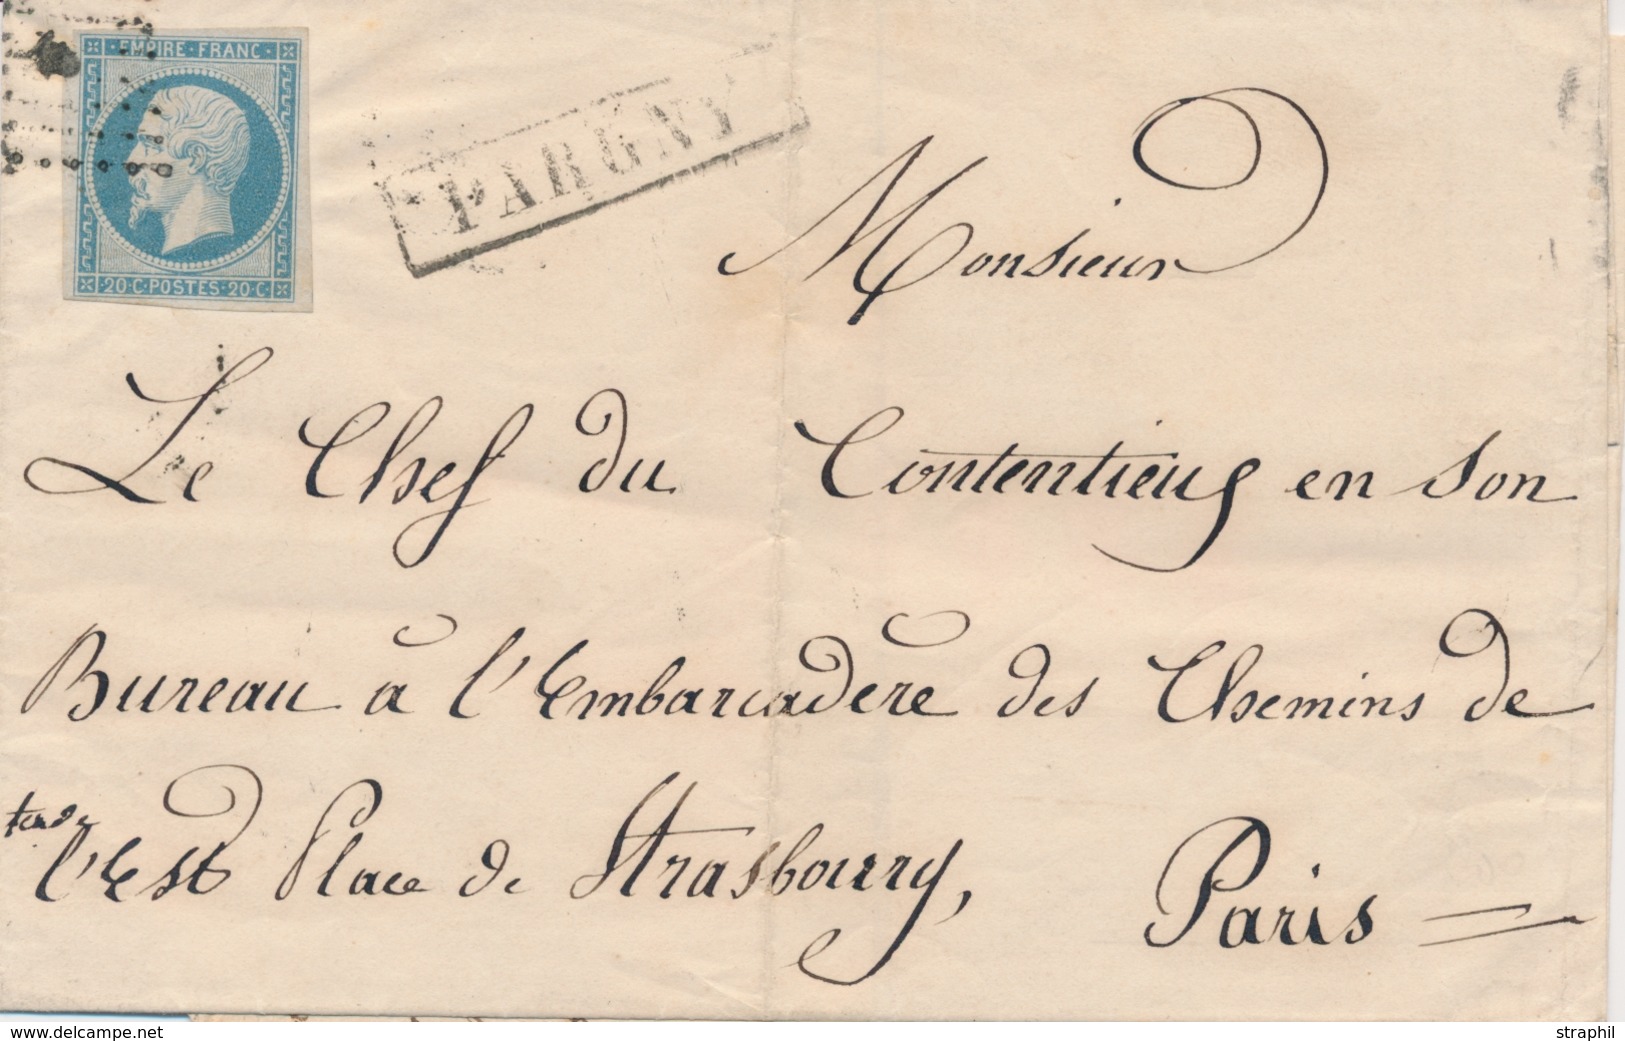 EMPIRE·FRANC·
·20·C·POSTES·20·C·
PARGNY
Monsieur
Le Chef du Contentieux en son
Bureau à l'Embarcadère des Chemins de
l'Est Place de Strasbourg,
Paris
www.delcampe.net
straphil